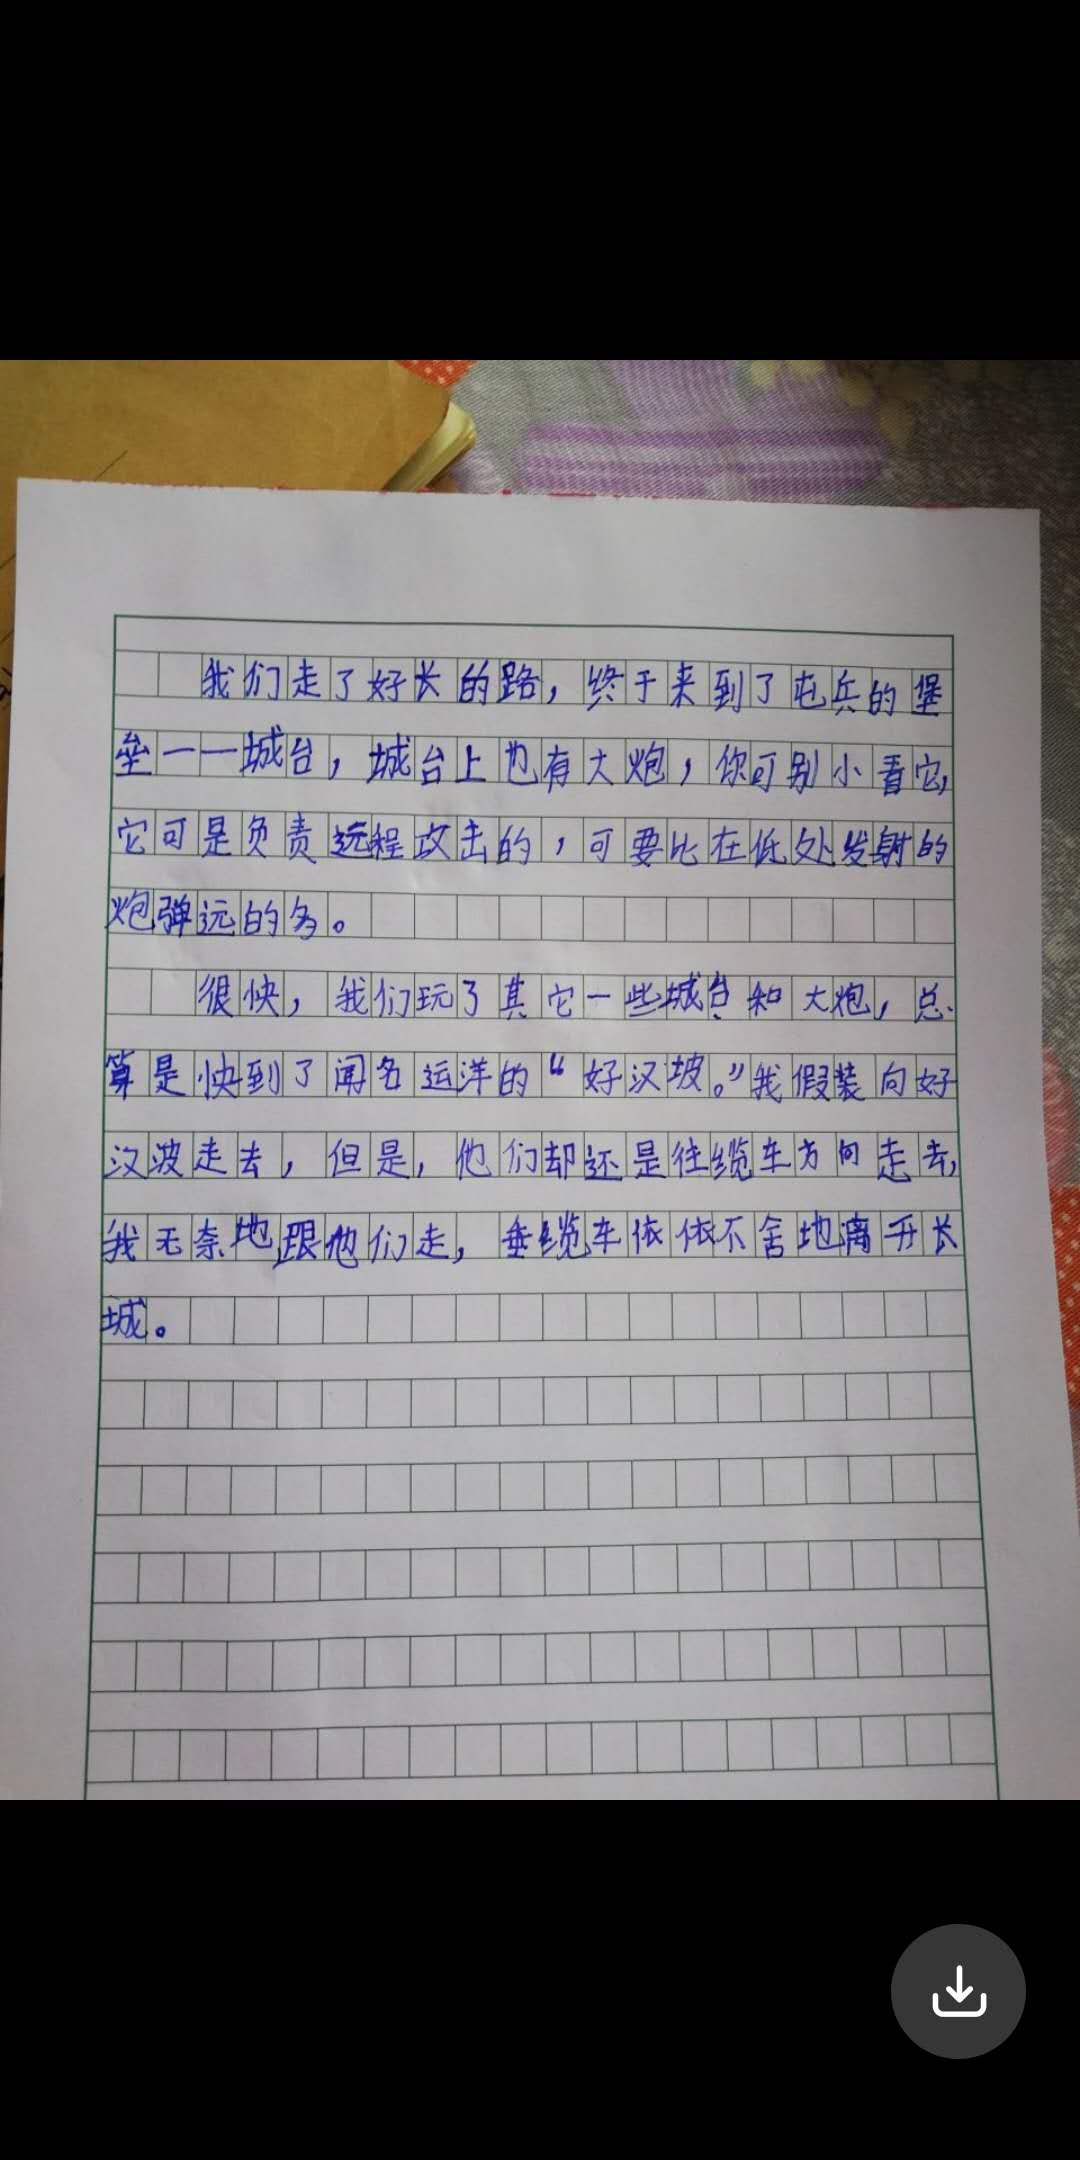 我们走了好长的路，终于来到了屯兵的堡
垒——城台，城台上也有大炮，你可别小看它，
它可是负责远程攻击的，可要比在低处发射的
炮弹远的多。
很快，我们玩了其它一些城台和大炮，总
算是快到了闻名运洋的“好汉坡。”我假装向好
汉波走去，但是，他们却还是往缆车方向走去，
我无奈地跟他们走，垂缆车依依不舍地离开长
城。